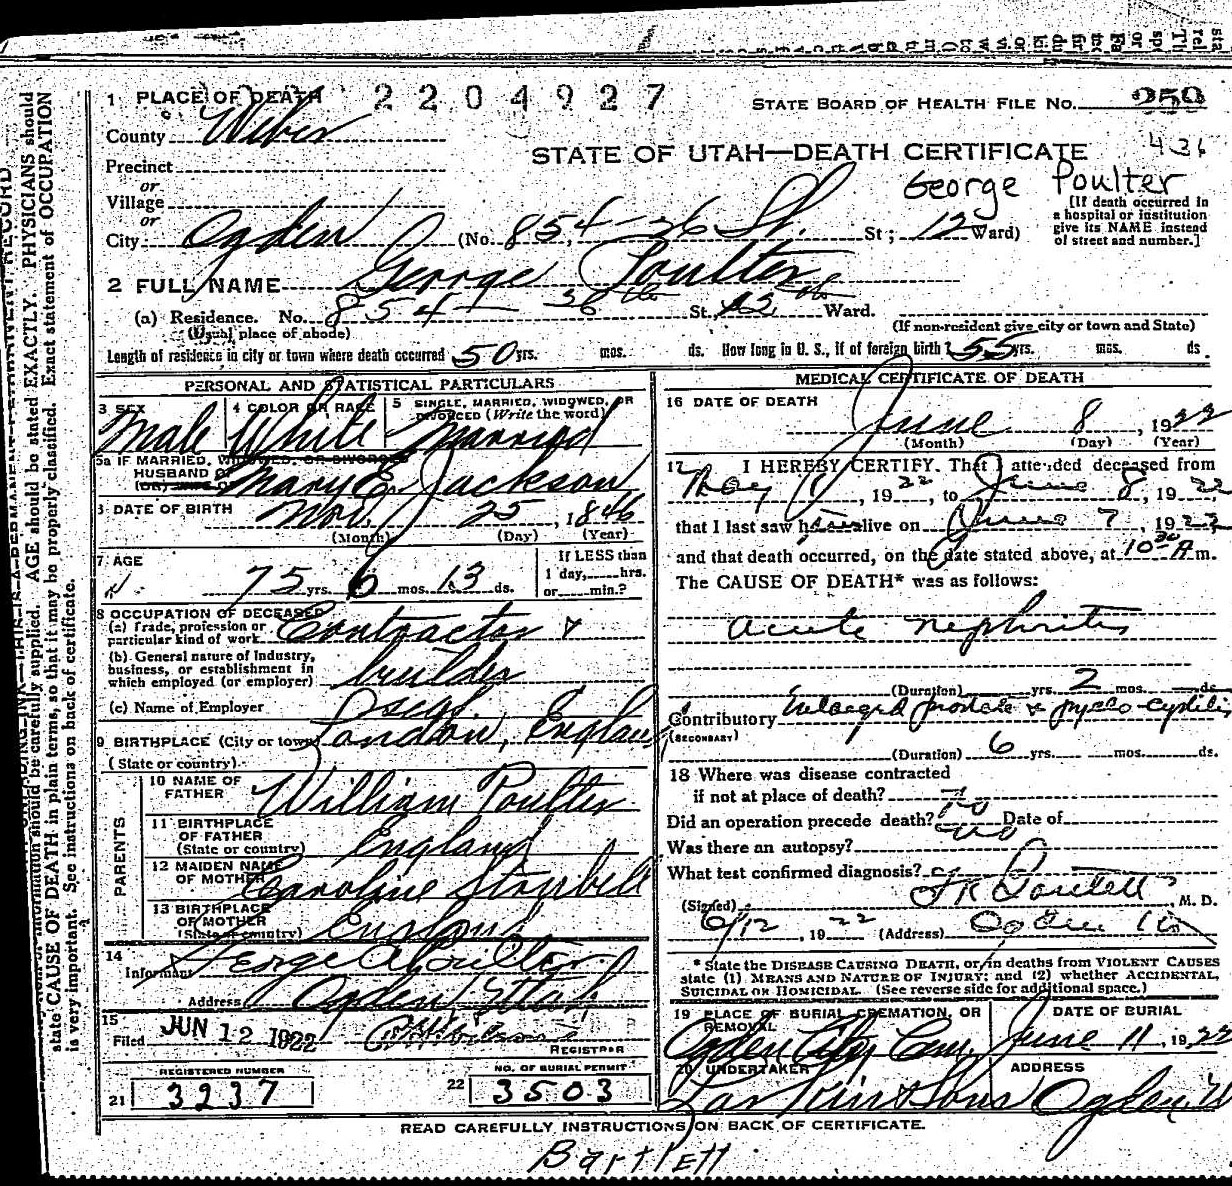 1 PLACE OF DEATH 2204927 STATE BOARD OF HEALTH FILE No. 250
County Weber
STATE OF UTAH—DEATH CERTIFICATE 436
Precinct
George Poulter
or
Village
or
[If death occurred in
a hospital or institution
give its NAME instead
of street and number.]
City Ogden (No. 854-36 St. St; 12 Ward)
2 FULL NAME George Poulter
(a) Residence. No. 854 - 36th St. 12th Ward.
(Usual place of abode) (If non-resident give city or town and State)
Length of residence in city or town where death occurred 50 yrs. mos. ds. How long in U. S., if of foreign birth? 55 yrs. mos. ds.
PERSONAL AND STATISTICAL PARTICULARS
3 SEX 4 COLOR OR RACE 5 SINGLE, MARRIED, WIDOWED, OR
DIVORCED (Write the word)
Male White Married
5a IF MARRIED, WIDOWED, OR DIVORCED
HUSBAND OF
(OR) WIFE OF Mary E. Jackson
6 DATE OF BIRTH Nov. 25, 1846
(Month) (Day) (Year)
7 AGE If LESS than
1 day,......hrs.
75 yrs. 6 mos. 13 ds. or......min.?
8 OCCUPATION OF DECEASED
(a) Trade, profession or
particular kind of work Contractor &
(b) General nature of Industry,
business, or establishment in
which employed (or employer) builder
(c) Name of Employer
9 BIRTHPLACE (City or town) London, England
(State or country)
PARENTS
10 NAME OF
FATHER William Poulter
11 BIRTHPLACE
OF FATHER
(State or country) England
12 MAIDEN NAME
OF MOTHER Caroline
13 BIRTHPLACE
OF MOTHER
(State or country) England
14
Informant George A Poulter
Address Ogden Utah
15
Filed JUN 12 1922
REGISTRAR
REGISTERED NUMBER
21 3237
NO. OF BURIAL PERMIT
22 3503
MEDICAL CERTIFICATE OF DEATH
16 DATE OF DEATH
June 8, 1922
(Month) (Day) (Year)
17 I HEREBY CERTIFY. That I attended deceased from
May 1, 1922, to June 8, 1922
that I last saw him alive on June 7, 1922
and that death occurred, on the date stated above, at 10 30 A m.
The CAUSE OF DEATH* was as follows:
acute nephritis
(Duration) yrs. 2 mos. ds.
Contributory Enlarged prostate & pyo-cystitis
(SECONDARY)
(Duration) 6 yrs. mos. ds.
18 Where was disease contracted
if not at place of death?
Did an operation precede death? no Date of
Was there an autopsy? no
What test confirmed diagnosis?
(Signed) M. D.
6/12, 1922 (Address) Ogden
* State the DISEASE CAUSING DEATH, or, in deaths from VIOLENT CAUSES
state (1) MEANS AND NATURE OF INJURY; and (2) whether ACCIDENTAL,
SUICIDAL OR HOMICIDAL. (See reverse side for additional space.)
19 PLACE OF BURIAL, CREMATION, OR
REMOVAL DATE OF BURIAL
Ogden City Cem. June 11, 1922
20 UNDERTAKER ADDRESS
Larkin & Sons Ogden, U
READ CAREFULLY INSTRUCTIONS ON BACK OF CERTIFICATE.
Bartlett
information should be carefully supplied. AGE should be stated EXACTLY. PHYSICIANS should
state CAUSE OF DEATH in plain terms, so that it may be properly classified. Exact statement of OCCUPATION
is very important. See instructions on back of certificate.